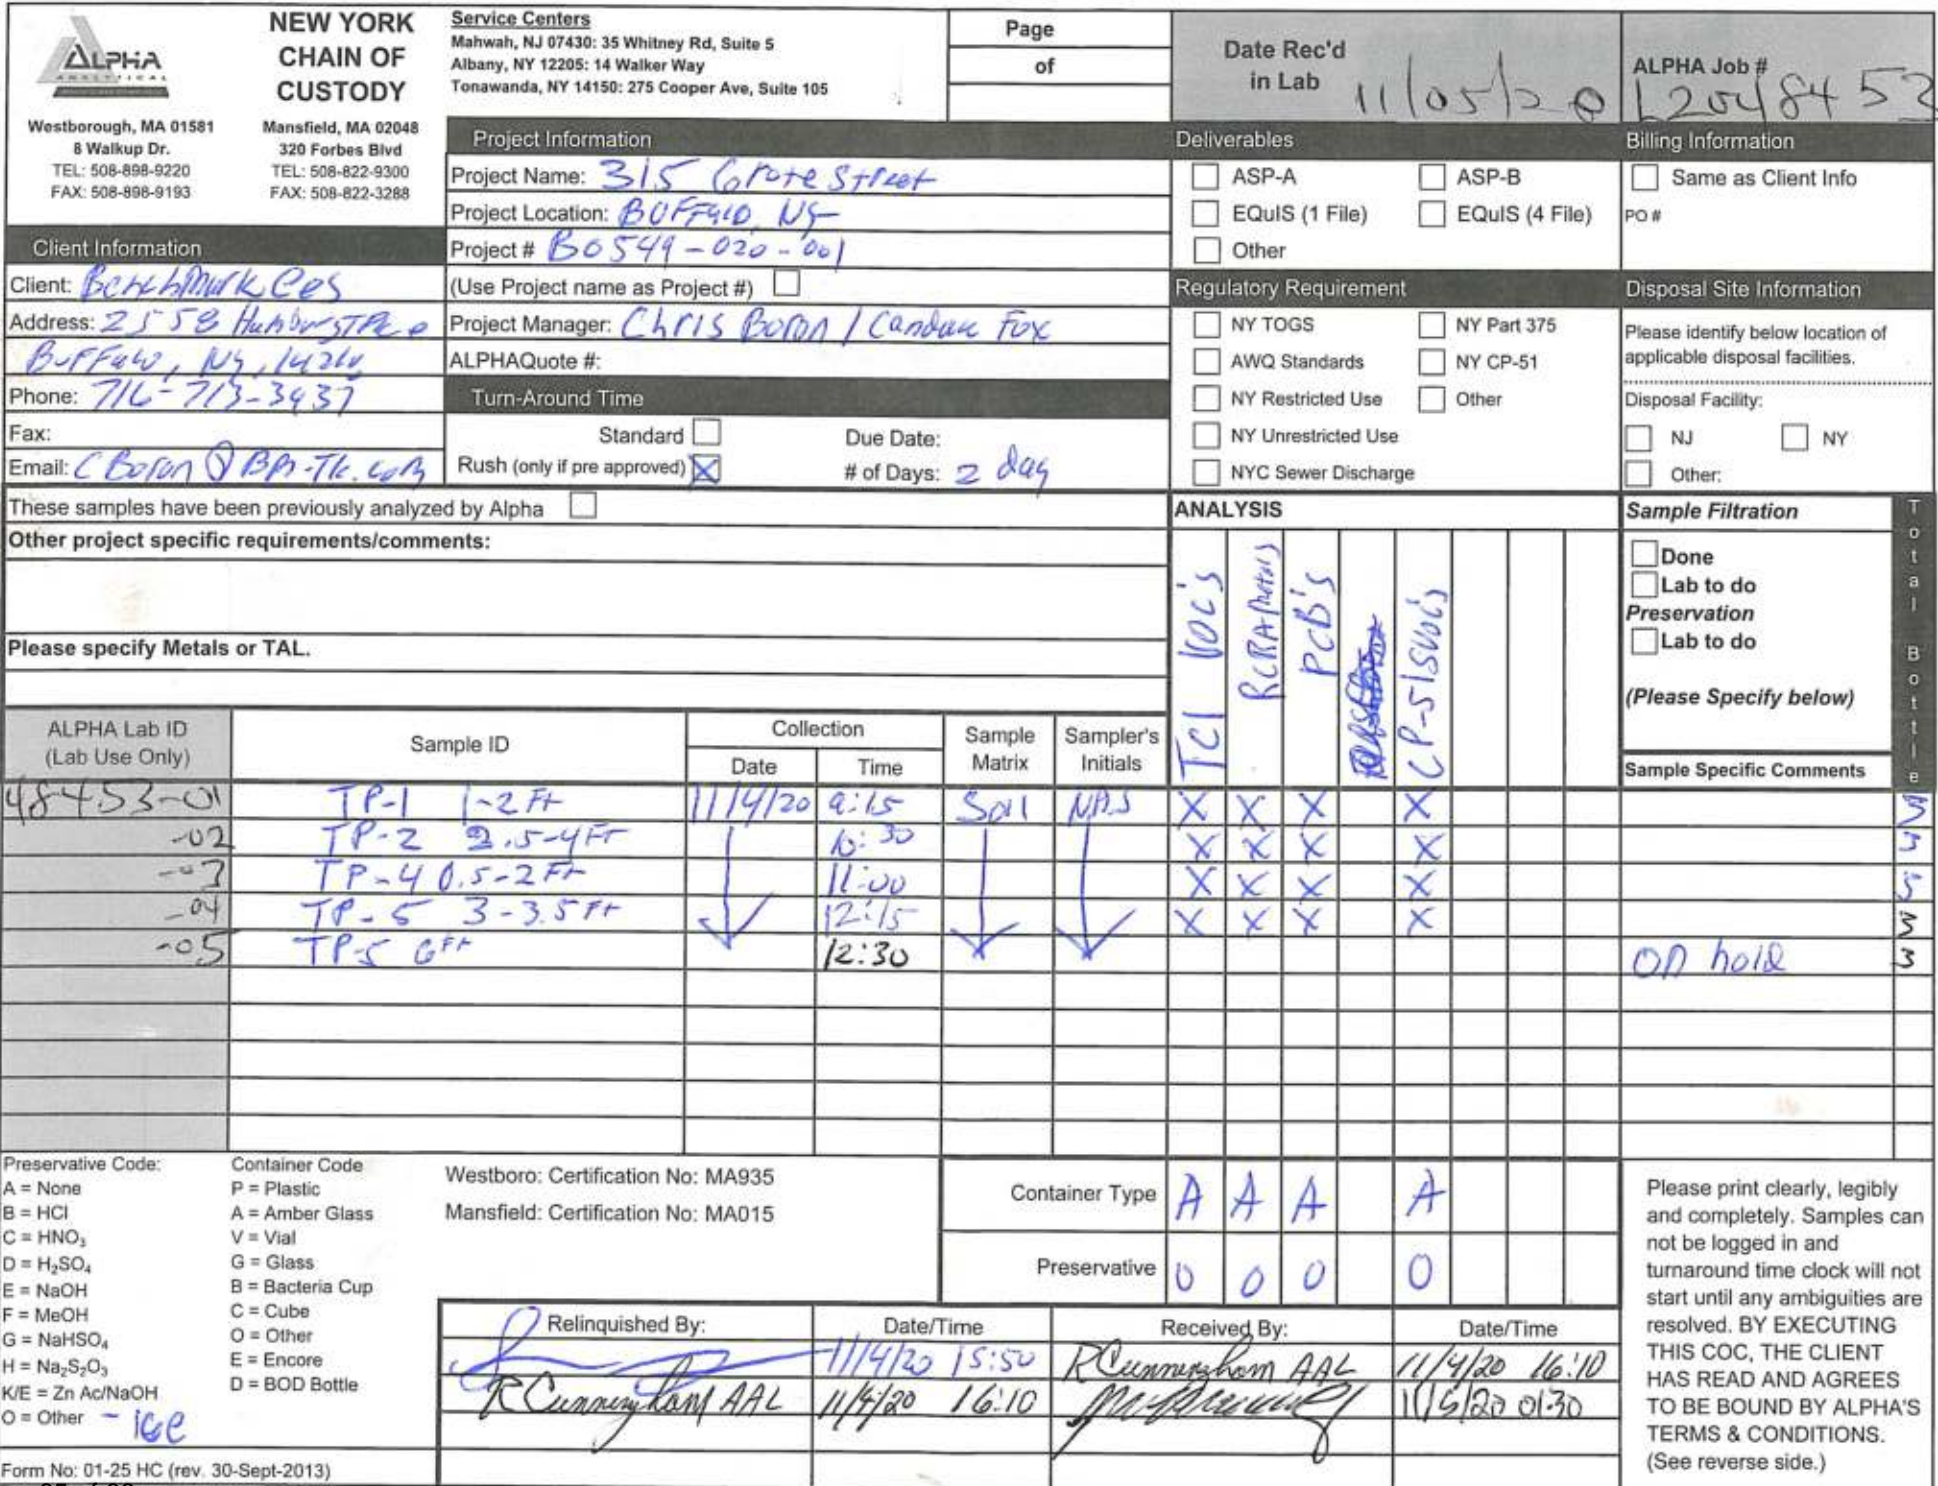 ALPHA
ANALYTICAL
Westborough, MA 01581
8 Walkup Dr.
TEL: 508-898-9220
FAX: 508-898-9193
NEW YORK
CHAIN OF
CUSTODY
Mansfield, MA 02048
320 Forbes Blvd
TEL: 508-822-9300
FAX: 508-822-3288
Service Centers
Mahwah, NJ 07430: 35 Whitney Rd, Suite 5
Albany, NY 12205: 14 Walker Way
Tonawanda, NY 14150: 275 Cooper Ave, Suite 105
Page
of
Date Rec'd
in Lab 11/05/20
ALPHA Job #
L2048453
Client Information
Client: Benchmark Ees
Address: 2558 Hamburg
Buffalo, NY, 
Phone: 716-713-3937
Fax:
Email: CBoron@BM-TK.com
Project Information
Project Name: 315 Grote Street
Project Location: Buffalo, NY
Project # B0549-020-001
(Use Project name as Project #)
Project Manager: Chris Boron / Candace Fox
ALPHAQuote #:
Turn-Around Time
Standard
Due Date:
Rush (only if pre approved) X
# of Days: 2 day
Deliverables
ASP-A
ASP-B
EQuIS (1 File)
EQuIS (4 File)
Other
Regulatory Requirement
NY TOGS
NY Part 375
AWQ Standards
NY CP-51
NY Restricted Use
Other
NY Unrestricted Use
NYC Sewer Discharge
Billing Information
Same as Client Info
PO #
Disposal Site Information
Please identify below location of
applicable disposal facilities.
Disposal Facility:
NJ
NY
Other:
These samples have been previously analyzed by Alpha
Other project specific requirements/comments:
Please specify Metals or TAL.
ANALYSIS
TCl VOC's
RCRA Metals
PCB's
CP-51 SVOC's
Sample Filtration
Done
Lab to do
Preservation
Lab to do
(Please Specify below)
Sample Specific Comments
Total Bottle
ALPHA Lab ID
(Lab Use Only)
Sample ID
Collection
Date
Time
Sample
Matrix
Sampler's
Initials
48453-01 TP-1 1-2 Ft 11/4/20 9:15 Soil NAS X X X X 3
-02 TP-2 2.5-4 Ft 10:30 X X X X 3
-03 TP-4 0.5-2 Ft 11:00 X X X X
-04 TP-5 3-3.5 Ft 12:15 X X X X 3
-05 TP-5 6 Ft 12:30 on hold 3
Preservative Code:
A = None
B = HCl
C = HNO3
D = H2SO4
E = NaOH
F = MeOH
G = NaHSO4
H = Na2S2O3
K/E = Zn Ac/NaOH
O = Other - ice
Container Code
P = Plastic
A = Amber Glass
V = Vial
G = Glass
B = Bacteria Cup
C = Cube
O = Other
E = Encore
D = BOD Bottle
Westboro: Certification No: MA935
Mansfield: Certification No: MA015
Container Type A A A A
Preservative O O O O
Relinquished By:
Date/Time
Received By:
Date/Time
11/4/20 15:50 RCunningham AAL 11/4/20 16:10
RCunningham AAL 11/4/20 16:10 11/5/20 01:30
Please print clearly, legibly
and completely. Samples can
not be logged in and
turnaround time clock will not
start until any ambiguities are
resolved. BY EXECUTING
THIS COC, THE CLIENT
HAS READ AND AGREES
TO BE BOUND BY ALPHA'S
TERMS & CONDITIONS.
(See reverse side.)
Form No: 01-25 HC (rev. 30-Sept-2013)